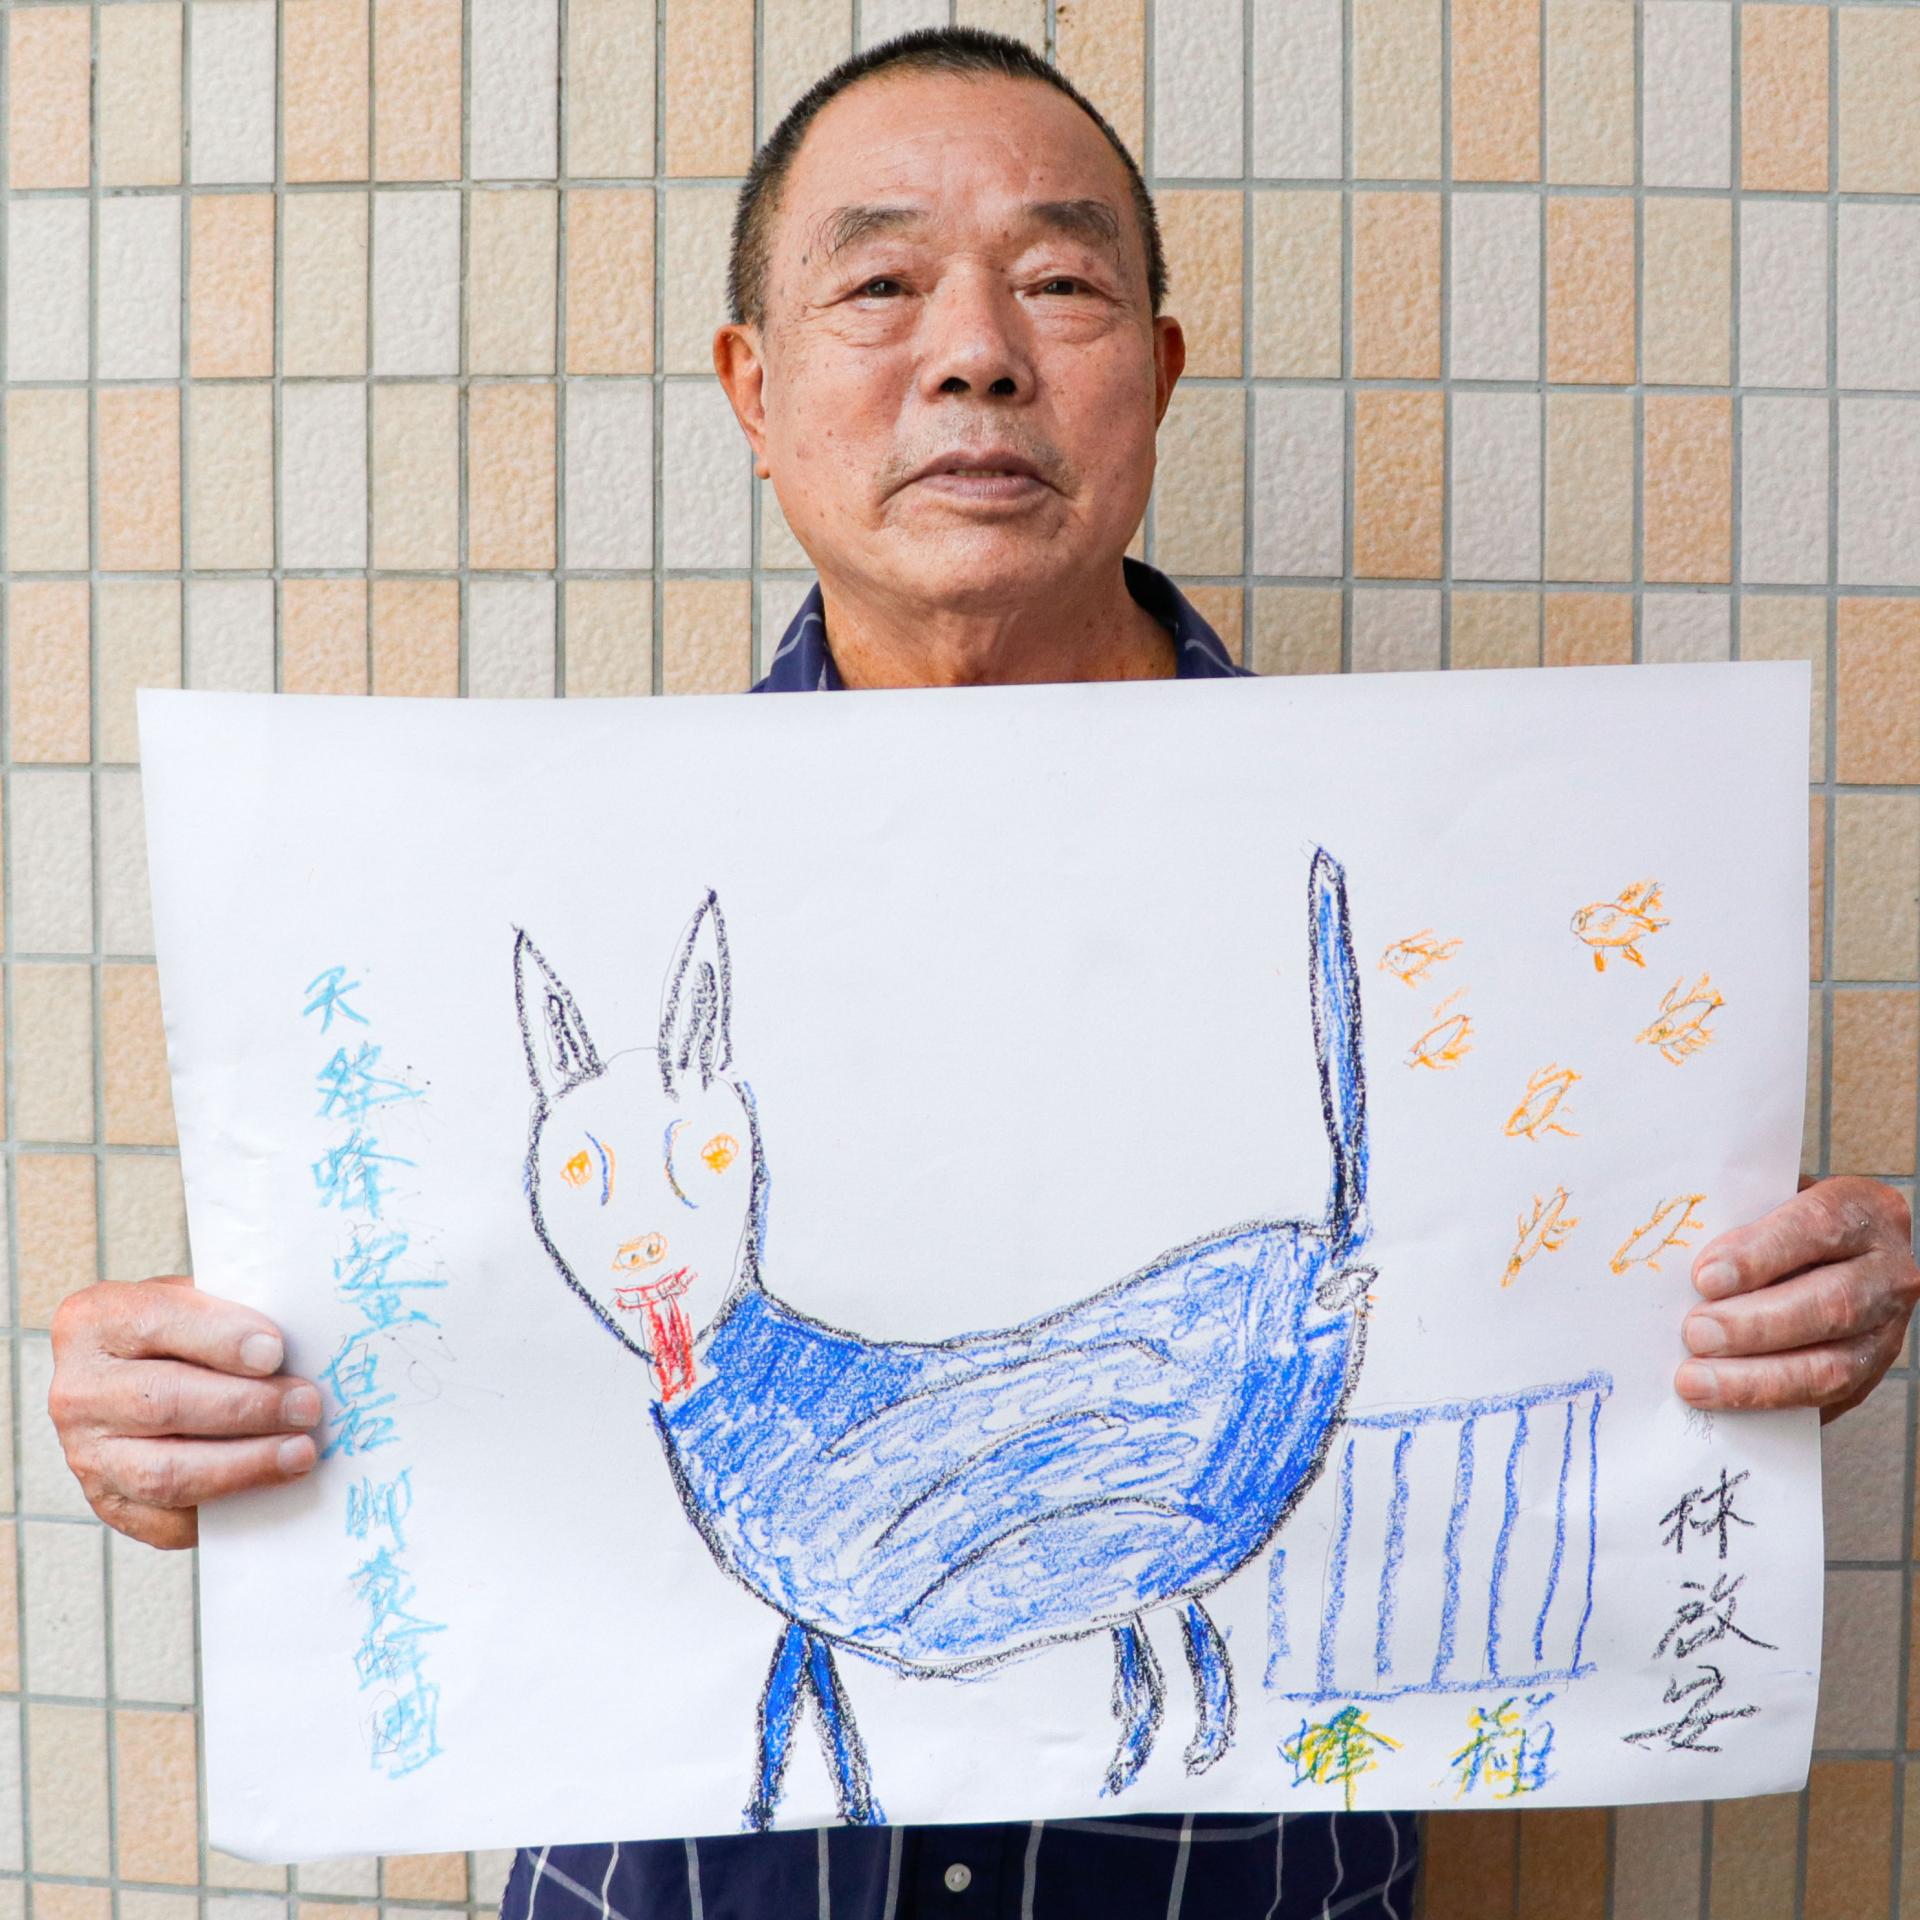 天然蜂蜜白石脚養蜂園
蜂箱
林啟安